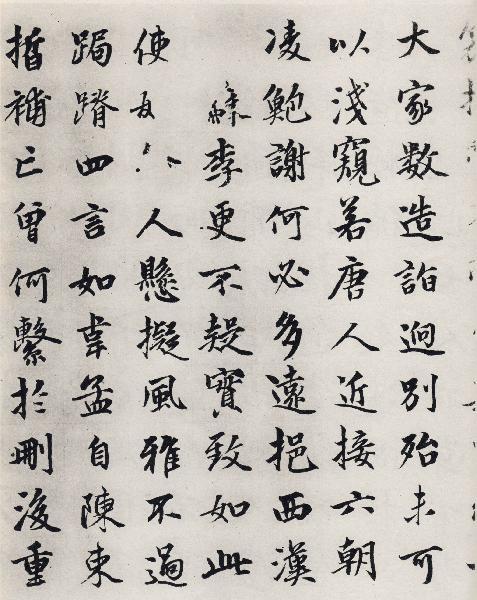 大家數造詣迥別殆未可
以淺窺若唐人近接六朝
凌鮑謝何必多遠挹西漢
李更不實致如此
使人懸擬風雅不過
跼蹐四言如韋孟自陳束
晳補亡曾何繫於刪後重